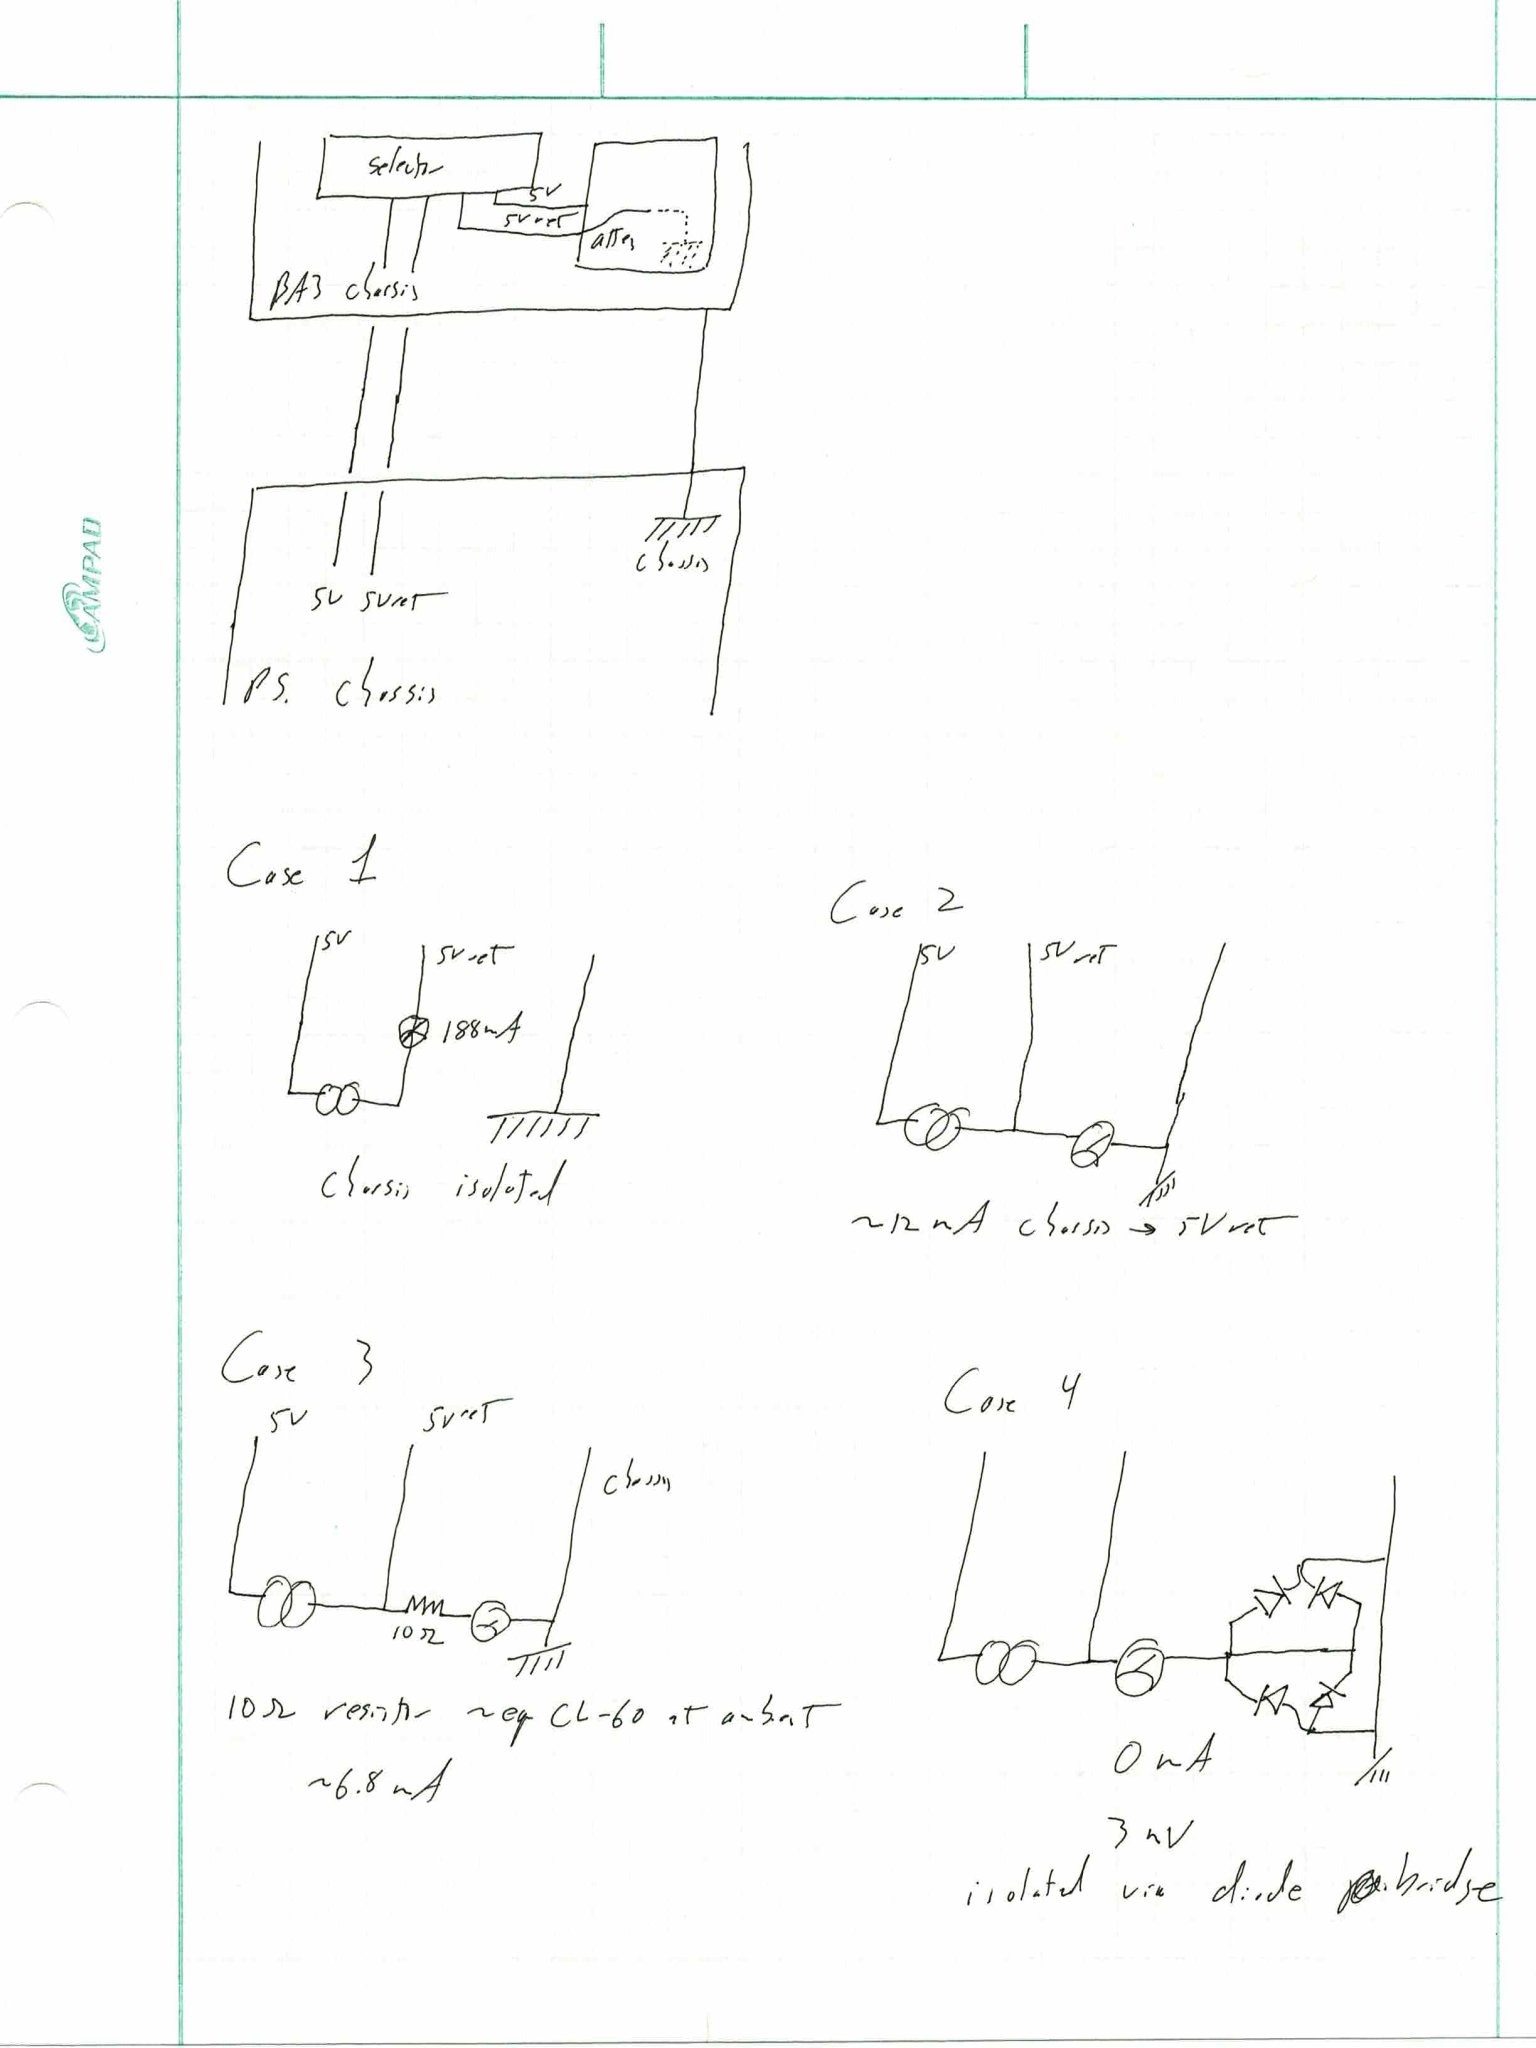 selector
5V
5V ret
atten
BA3 chassis
chassis
5V 5V ret
P.S. chassis
AMPAD
Case 1
5V
5V ret
188mA
chassis isolated
Case 2
5V
5V ret
~12 mA chassis → 5V ret
Case 3
5V
5V ret
chassis
10Ω
10Ω resistor ~eq CL-60 at ambient
~6.8 mA
Case 4
0 mA
3 mV
isolated via diode bridge